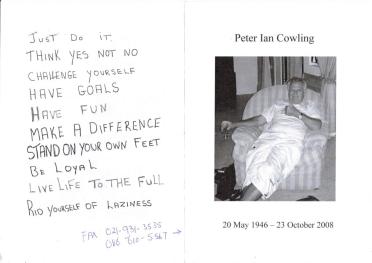 JUST DO IT.
THINK YES NOT NO
CHALLENGE YOURSELF
HAVE GOALS
HAVE FUN
MAKE A DIFFERENCE
STAND ON YOUR OWN FEET
BE LOYAL
LIVE LIFE TO THE FULL
RID YOURSELF OF LAZINESS
FAX 021-931-3535
086 610-5567 →
Peter Ian Cowling
20 May 1946 – 23 October 2008